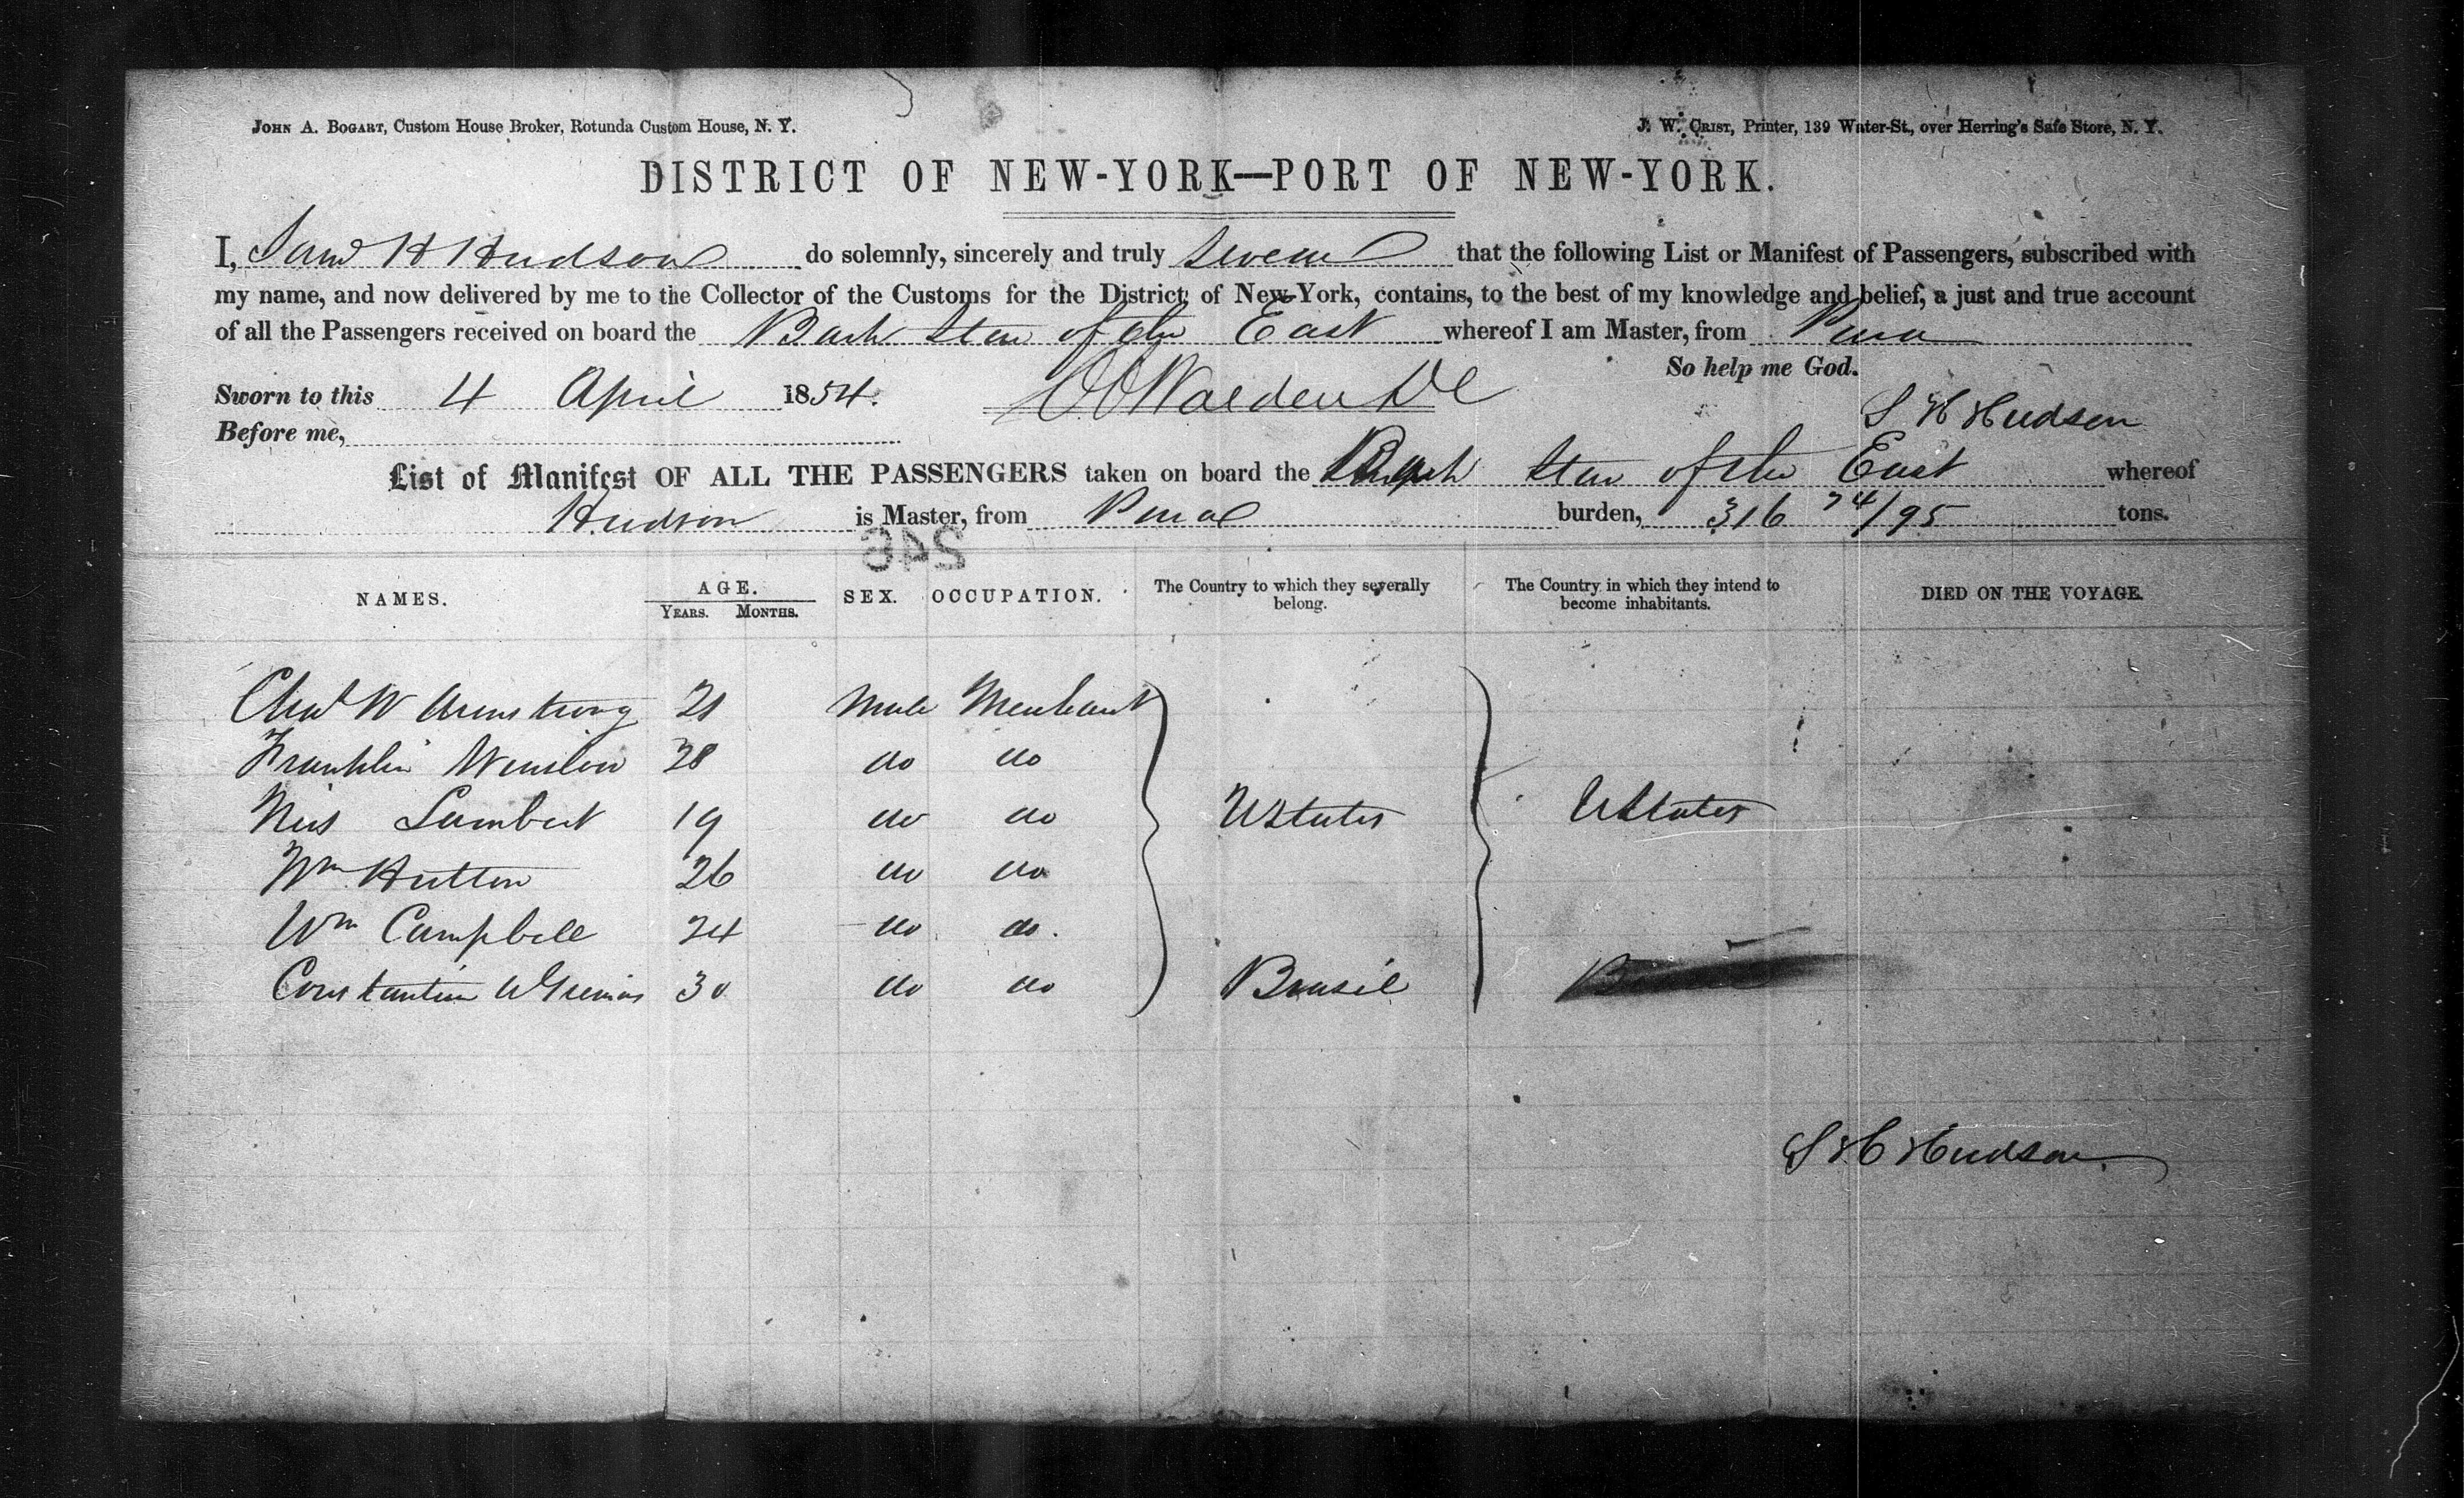 John A. Bogart, Custom House Broker, Rotunda Custom House, N. Y.
J. W. Crist, Printer, 139 Water-St., over Herring's Safe Store, N. Y.
DISTRICT OF NEW-YORK—PORT OF NEW-YORK.
I, Saml H Hudson do solemnly, sincerely and truly swear that the following List or Manifest of Passengers, subscribed with
my name, and now delivered by me to the Collector of the Customs for the District of New-York, contains, to the best of my knowledge and belief, a just and true account
of all the Passengers received on board the Bark Star of the East whereof I am Master, from Para
So help me God.
Sworn to this 4 April 1854.
S H Hudson
Before me,
List of Manifest OF ALL THE PASSENGERS taken on board the Bark Star of the East whereof
Hudson is Master, from Para burden, 316 74/95 tons.
246
NAMES. AGE. SEX. OCCUPATION. The Country to which they severally belong. The Country in which they intend to become inhabitants. DIED ON THE VOYAGE.
YEARS. MONTHS.
Chas W Armstrong 21 Male Merchant
Franklin Winslow 28 do do
Lambert 19 do do UStates UStates
Wm Hutton 26 do do
Wm Campbell 24 do do.
Constantin 30 do do Brasil
S H Hudson